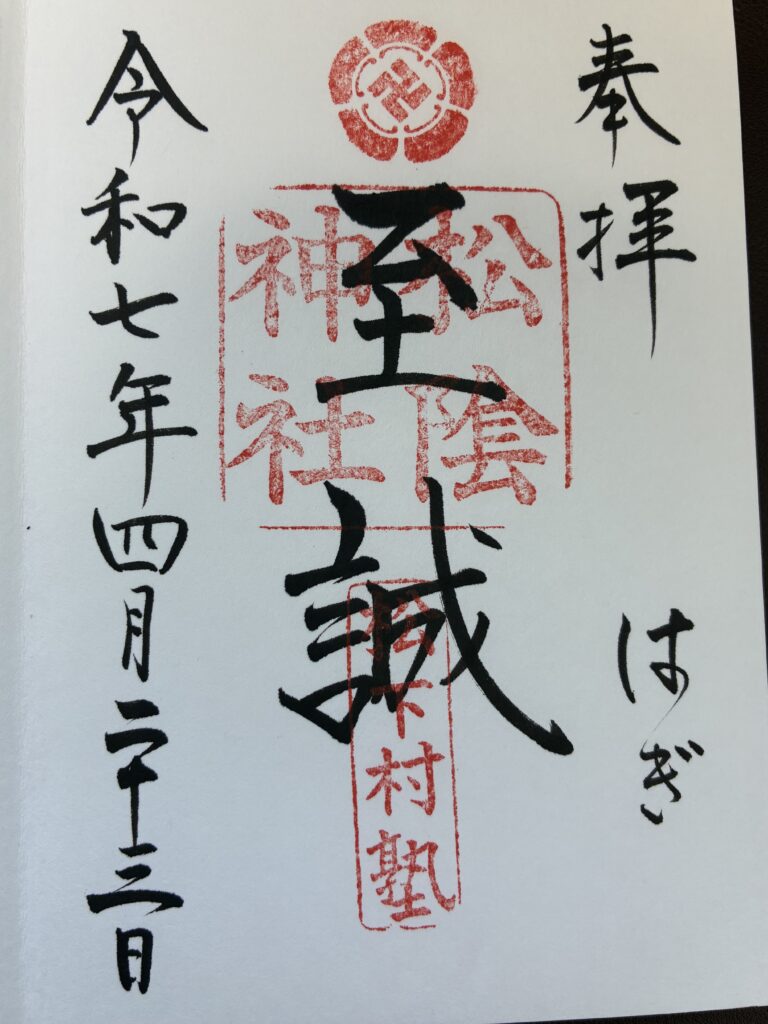 奉拝
はぎ
至誠
松陰
神社
松下村塾
令和七年四月二十三日